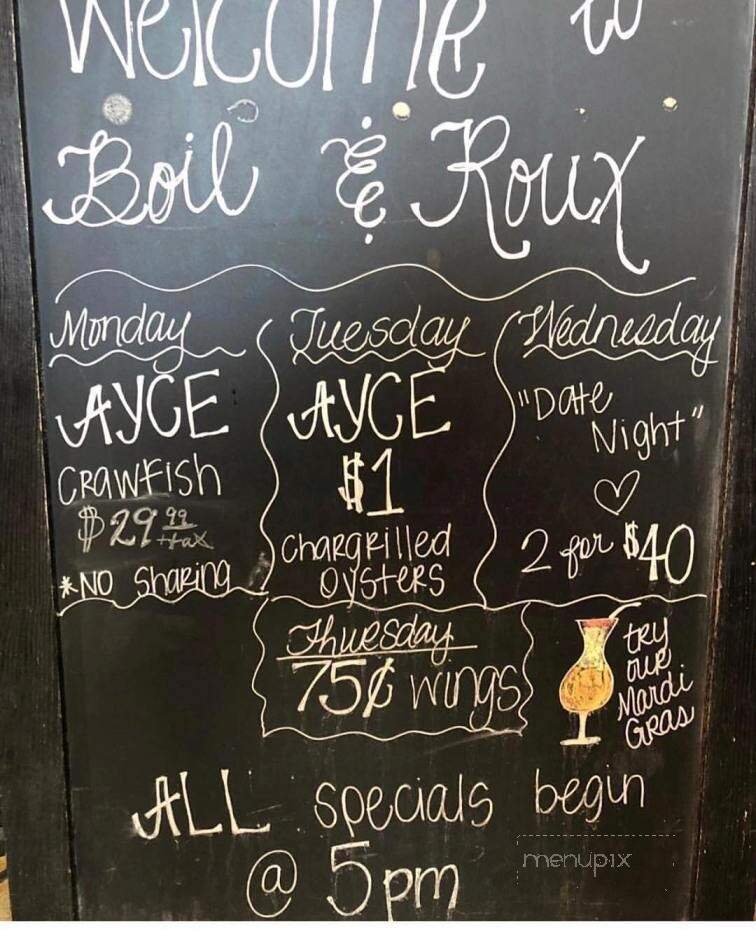 Welcome to
Boil & Roux
Monday
AYCE
CRawFish
$29.99
+tax
*NO Sharing
Tuesday
AYCE
$1
ChargRilled
OysteRs
Wednesday
"Date
Night"
2 for $40
Thursday
75¢ wings
try
our
Mardi
Gras
ALL specials begin
@ 5pm
menupix